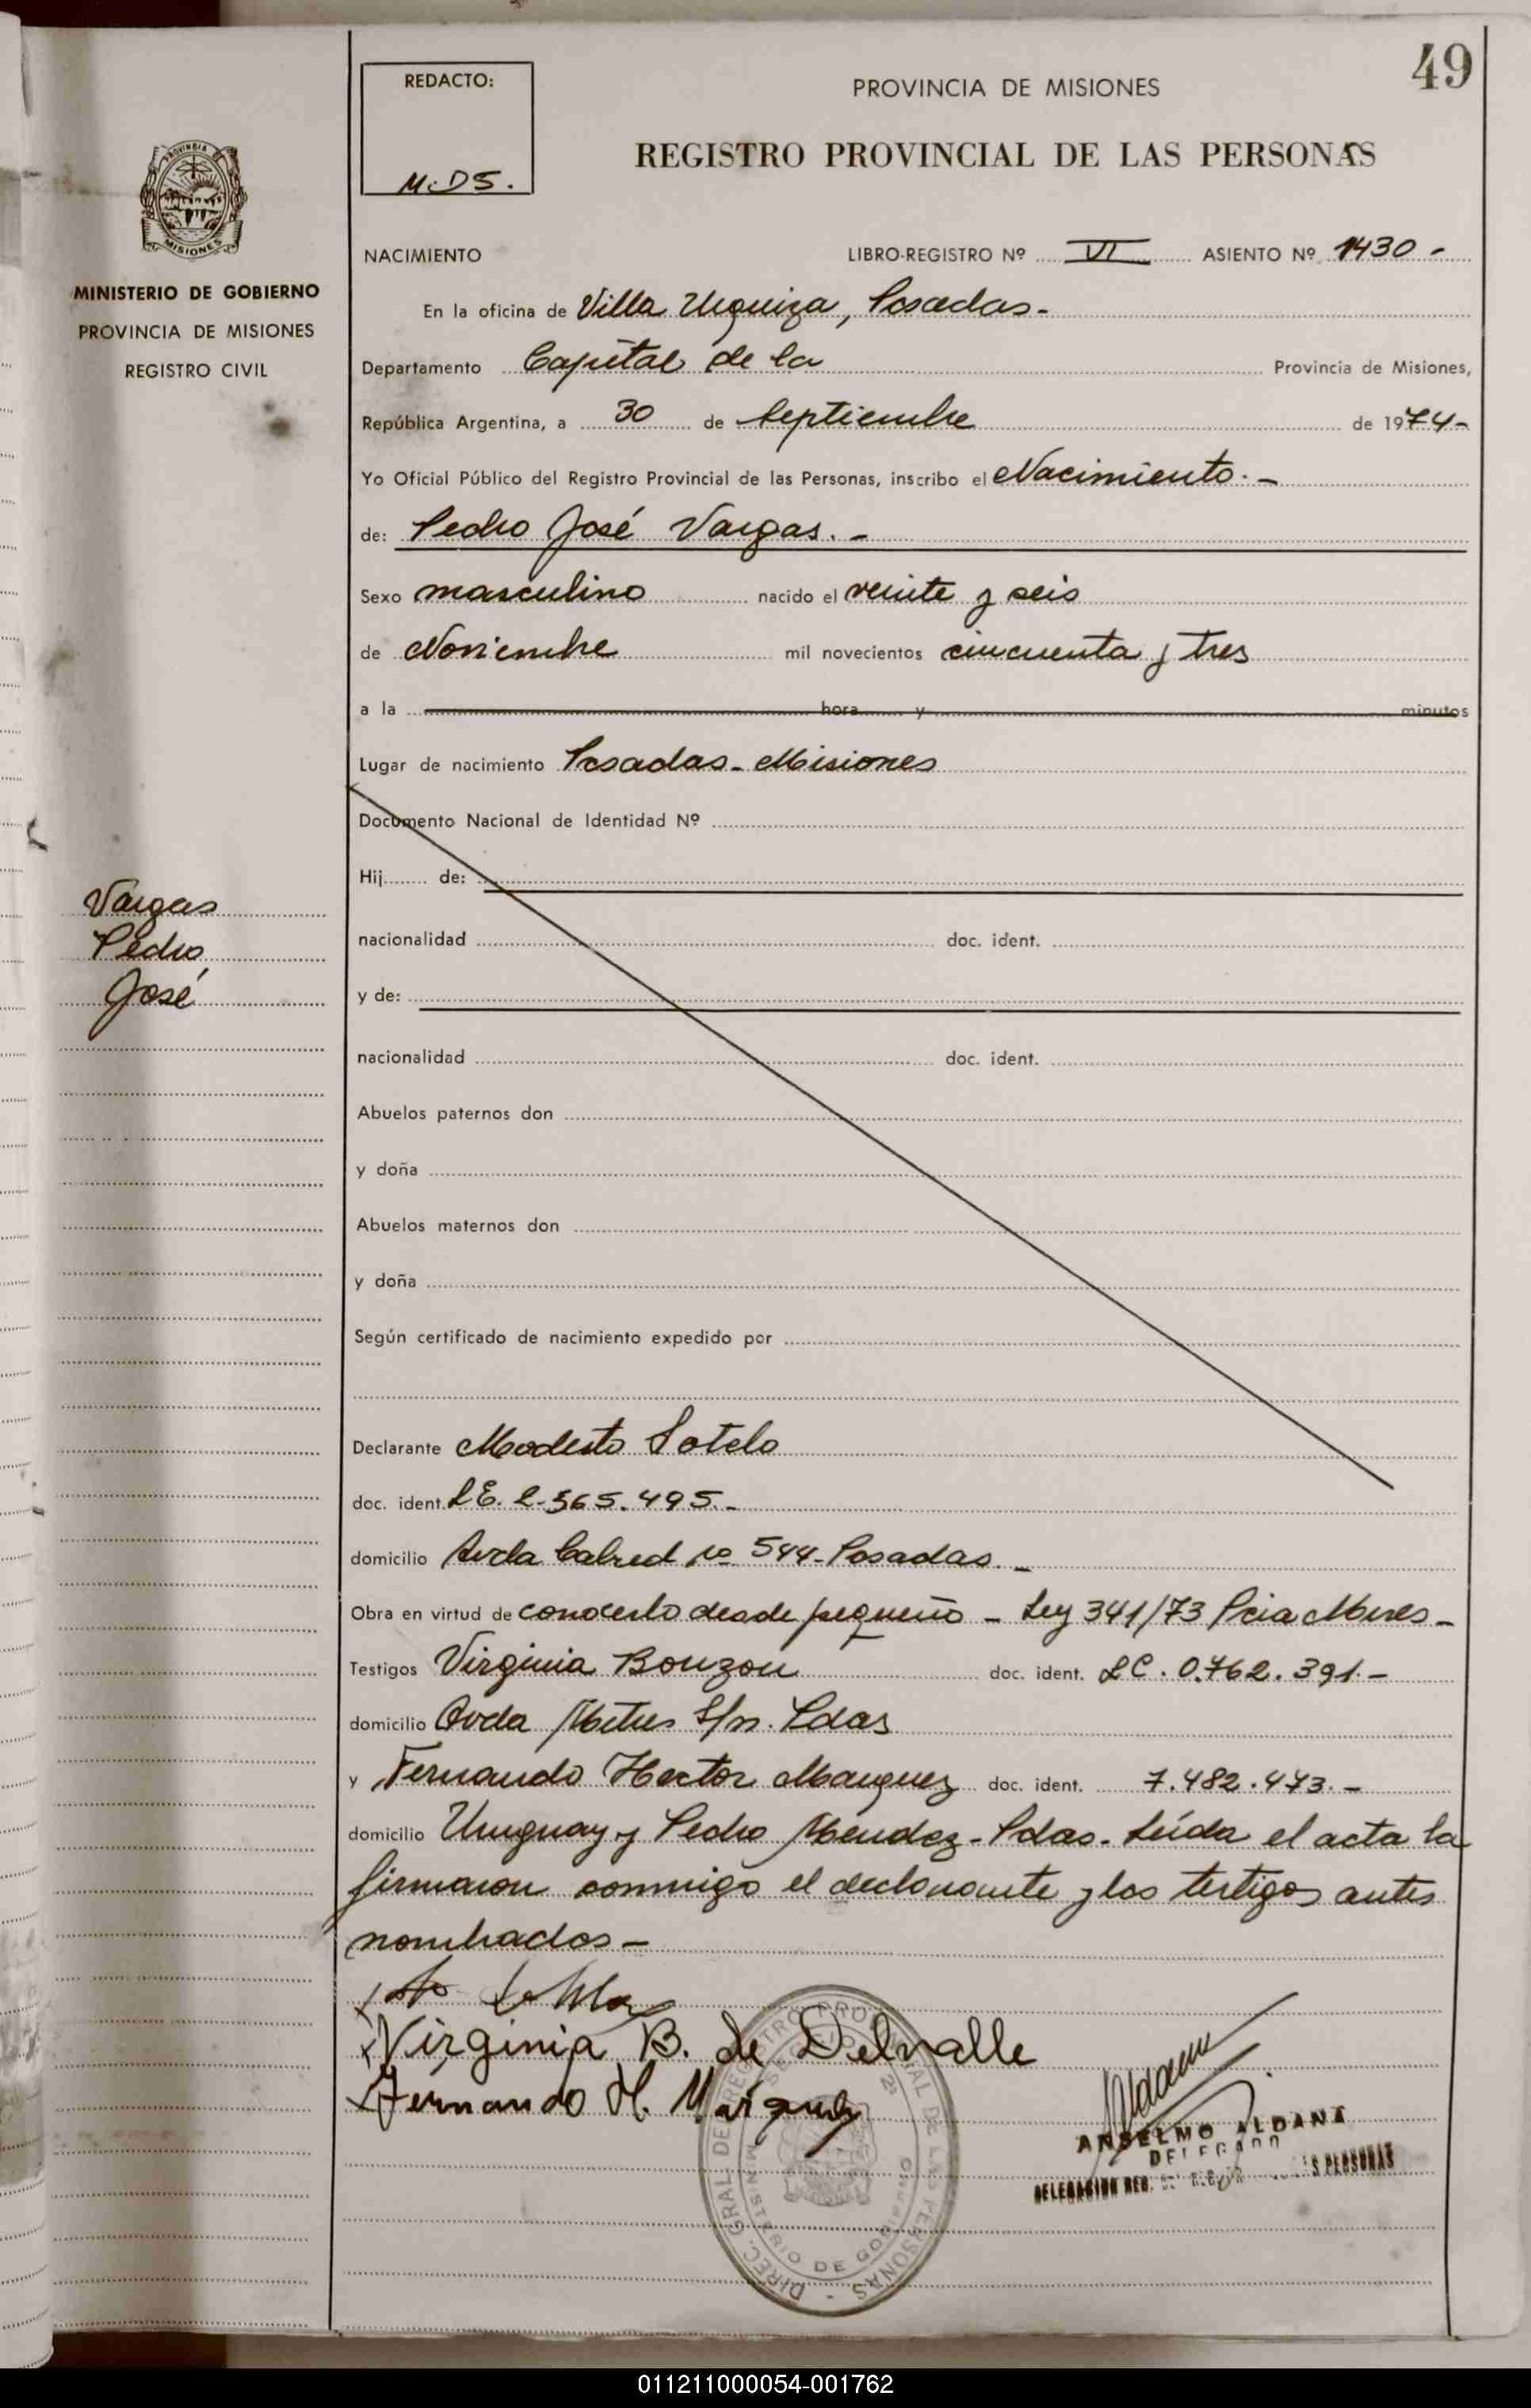 49
REDACTO:
M.DS.
PROVINCIA DE MISIONES
REGISTRO PROVINCIAL DE LAS PERSONAS
MISIONES
MINISTERIO DE GOBIERNO
PROVINCIA DE MISIONES
REGISTRO CIVIL
NACIMIENTO LIBRO-REGISTRO Nº VI ASIENTO Nº 1430 -
En la oficina de Villa Urquiza, Posadas-
Departamento Capital de la Provincia de Misiones,
República Argentina, a 30 de Septiembre de 1974-
Yo Oficial Público del Registro Provincial de las Personas, inscribo el Nacimiento.-
de: Pedro José Vargas.-
Sexo masculino nacido el veinte y seis
de Noviembre mil novecientos cincuenta y tres
a la hora y minutos
Lugar de nacimiento Posadas-Misiones
Documento Nacional de Identidad Nº
Hij de:
Vargas
Pedro
José
nacionalidad doc. ident.
y de:
nacionalidad doc. ident.
Abuelos paternos don
y doña
Abuelos maternos don
y doña
Según certificado de nacimiento expedido por
Declarante Modesto Sotelo
doc. ident. LE. 2.565.495.-
domicilio Avda Cabred nº 544-Posadas.-
Obra en virtud de conocerlo desde pequeño - Ley 341/73 Pcia Mnes-
Testigos Virginia Bouzon doc. ident. LC. 0.762.391.-
domicilio Avda Mitre S/n. Pdas
y Fernando Hector Marquez doc. ident. 7.482.473.-
domicilio Uruguay y Pedro Mendez-Pdas. Leída el acta la
firmaron conmigo el declarante y los testigos antes
nombrados-
Virginia B. de Delvalle
Fernando H. Marquez
ANSELMO ALDANA
DELEGADO
DELEGACION REG. PERSONAS
DIREC. GRAL DE REGISTRO PROVINCIAL DE LAS PERSONAS -
MINISTERIO DE GOBIERNO
011211000054-001762